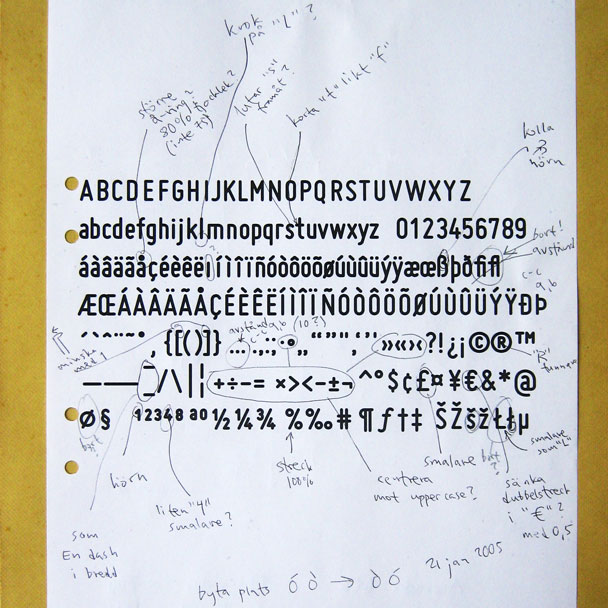 krok
på "l"?
större
a-ring?
80% tjocklek?
(inte 75)
lutar "s"
framåt?
korta "t" likt "f"
kolla
β
hörn
ABCDEFGHIJKLMNOPQRSTUVWXYZ
abcdefghijklmnopqrstuvwxyz 0123456789
bort!
avstånd
áàâäãåçéèêëıíìîïñóòôöõøúùûüýÿæœßþðfifl
c-c
a,b
ÆŒÁÀÂÄÃÅÇÉÈÊËÍÌÎÏÑÓÒÔÖÕØÚÙÛÜÝŸÐÞ
avstånd a,b (10?)
´`ˆ¨˜˚, {[()]} ...:,:; ·• „“”", ‘’' »«›‹?!¿¡©®™
minska
med 1
"R"
tunnare
—–-_/\|¦+÷−= ×><~±¬^°$¢£¤¥€&*@
Ø§ ¹²³⁴⁸ ªº ½¼¾ %‰#¶ƒ†‡ ŠŽšžŁłµ
byt
hörn
liten "4"
smalare?
streck
100%
centrera
mot uppercase?
smalare
byt?
smalare
som "L"
sänka
dubbelstreck
i "€"?
med 0,5
som
En dash
i bredd
byta plats ó ò → ò ó
21 jan 2005